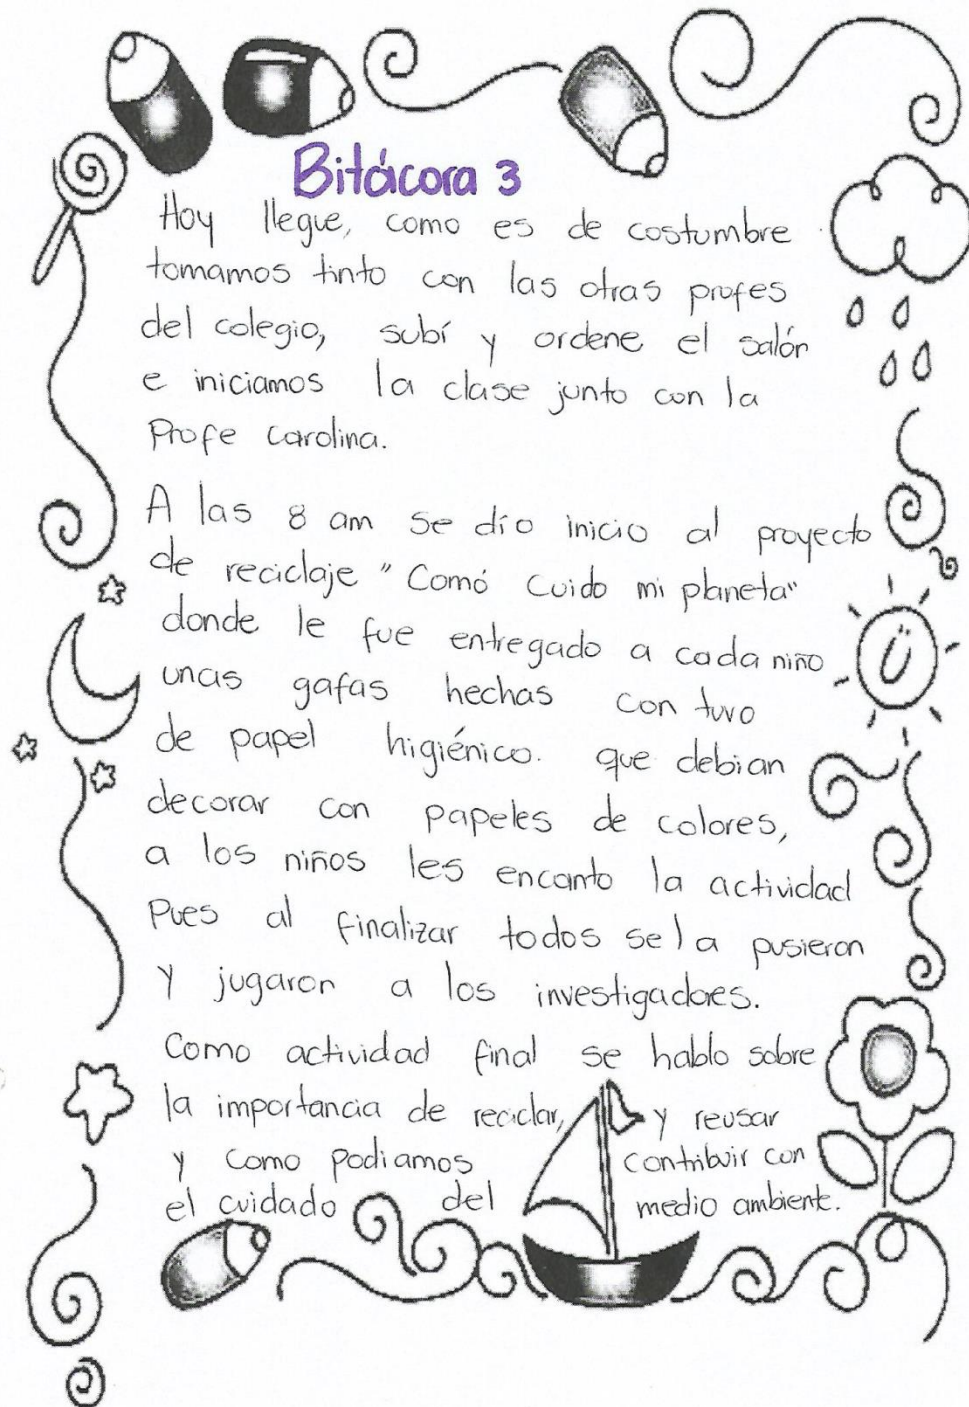 Bitácora 3
Hoy llegue, como es de costumbre
tomamos tinto con las otras profes
del colegio, subí y ordene el salón
e iniciamos la clase junto con la
Profe Carolina.
A las 8 am se dío inicio al proyecto
de reciclaje "Comó Cuido mi planeta"
donde le fue entregado a cada niño
unas gafas hechas con tuvo
de papel higiénico. que debian
decorar con papeles de colores,
a los niños les encanto la actividad
Pues al finalizar todos se la pusieron
y jugaron a los investigadores.
Como actividad final se hablo sobre
la importancia de reciclar, y reusar
y como podiamos contribuir con
el cuidado del medio ambiente.